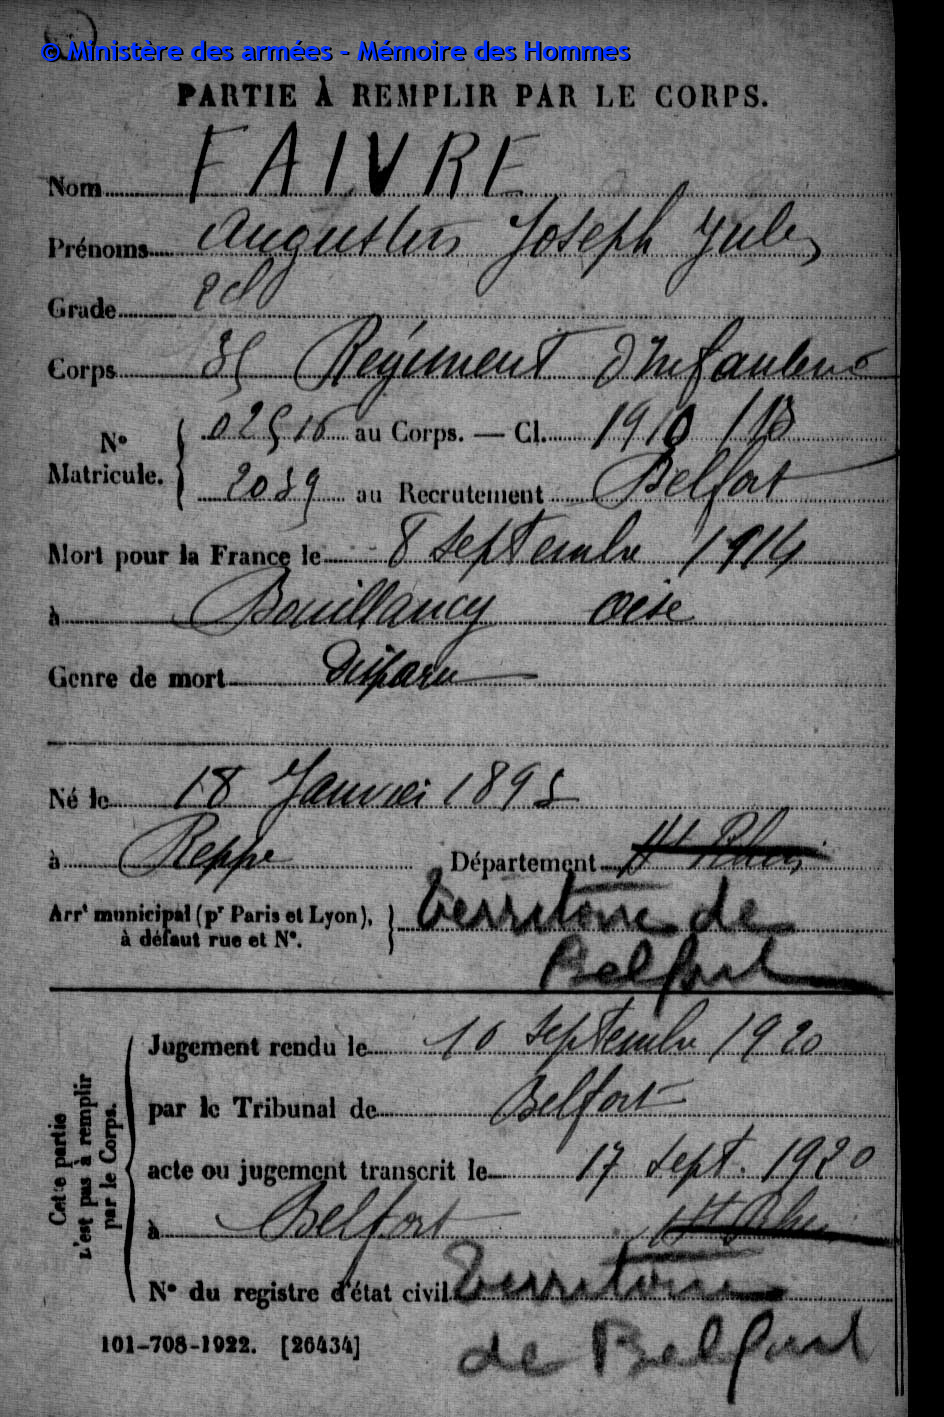 © Ministère des armées - Mémoire des Hommes
PARTIE À REMPLIR PAR LE CORPS.
Nom FAIVRE
Prénoms Augustin Joseph Jules
Grade 2 cl
Corps 35 Régiment d'Infanterie
N° Matricule. { 02516 au Corps. — Cl. 1910
2039 au Recrutement Belfort
Mort pour la France le 8 septembre 1914
à Bouillancy Oise
Genre de mort Disparu
Né le 18 Janvier 1895
à Reppe Département Ht Rhin
Arrt municipal (pr Paris et Lyon), à défaut rue et N°. } Territoire de
Belfort
Cette partie n'est pas à remplir par le Corps.
Jugement rendu le 10 septembre 1920
par le Tribunal de Belfort
acte ou jugement transcrit le 17 sept. 1920
à Belfort Ht Rhin
N° du registre d'état civil Territoire
de Belfort
101-708-1922. [26434]